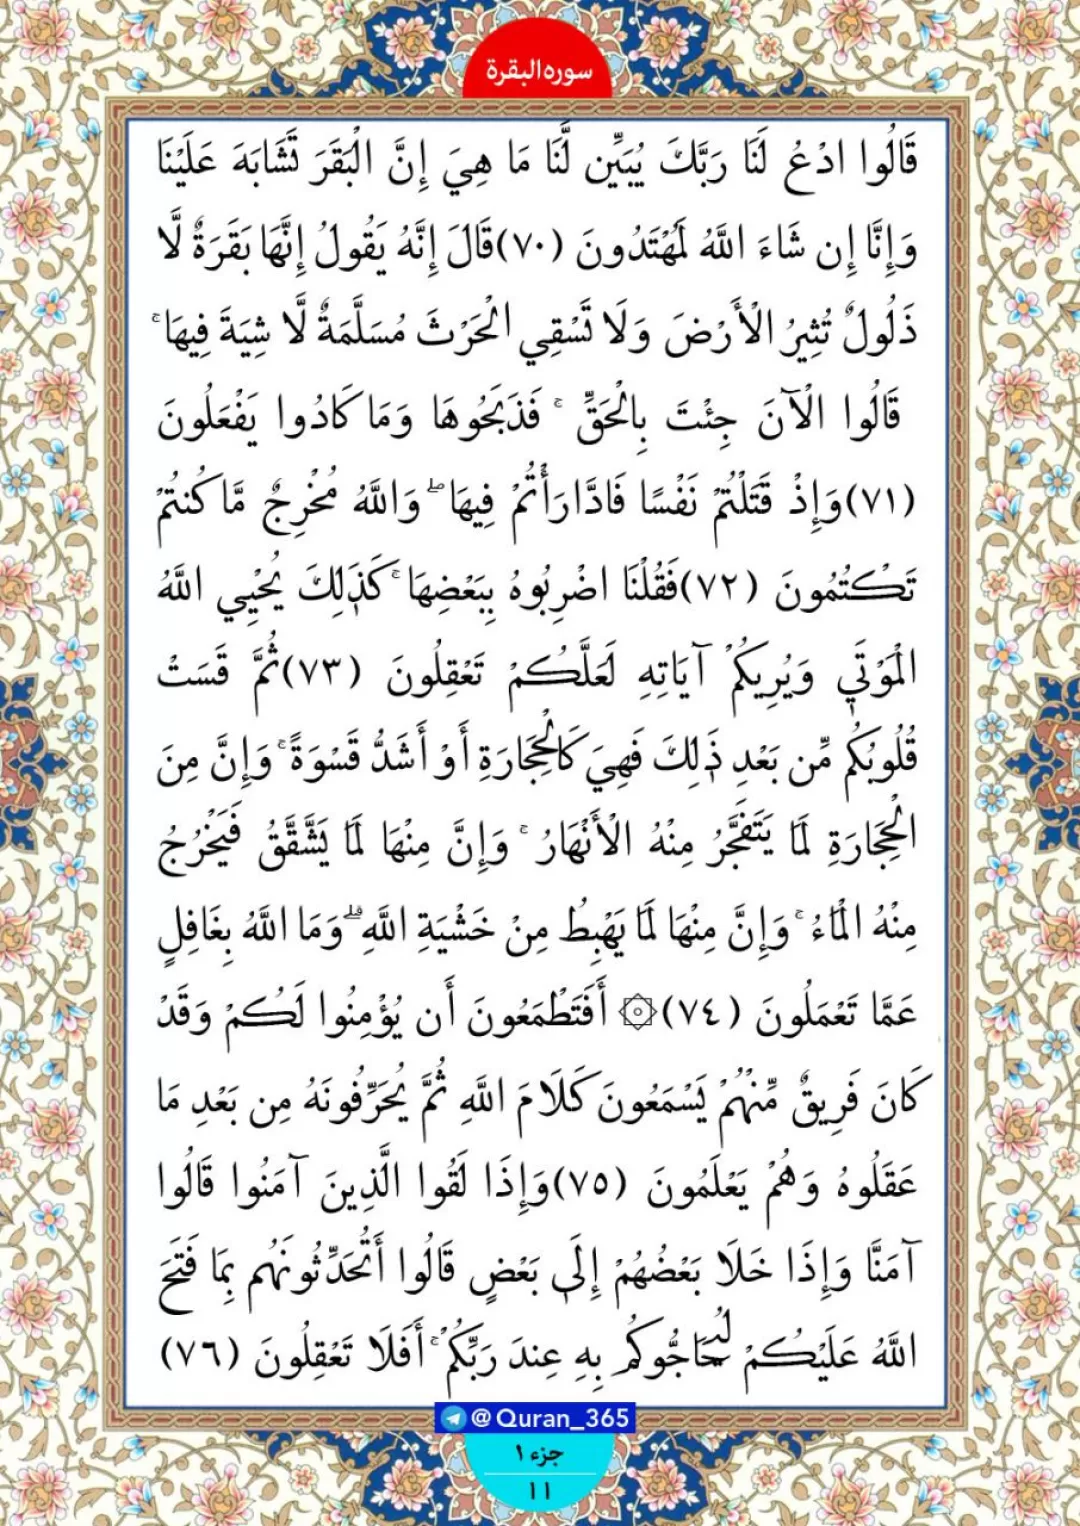 سوره البقرة
قَالُوا ادْعُ لَنَا رَبَّكَ يُبَيِّن لَّنَا مَا هِيَ إِنَّ الْبَقَرَ تَشَابَهَ عَلَيْنَا
وَإِنَّا إِن شَاءَ اللَّهُ لَمُهْتَدُونَ (٧٠)قَالَ إِنَّهُ يَقُولُ إِنَّهَا بَقَرَةٌ لَّا
ذَلُولٌ تُثِيرُ الْأَرْضَ وَلَا تَسْقِي الْحَرْثَ مُسَلَّمَةٌ لَّا شِيَةَ فِيهَا ۚ
قَالُوا الْآنَ جِئْتَ بِالْحَقِّ ۚ فَذَبَحُوهَا وَمَا كَادُوا يَفْعَلُونَ
(٧١)وَإِذْ قَتَلْتُمْ نَفْسًا فَادَّارَأْتُمْ فِيهَا ۖ وَاللَّهُ مُخْرِجٌ مَّا كُنتُمْ
تَكْتُمُونَ (٧٢)فَقُلْنَا اضْرِبُوهُ بِبَعْضِهَا ۚ كَذَٰلِكَ يُحْيِي اللَّهُ
الْمَوْتَىٰ وَيُرِيكُمْ آيَاتِهِ لَعَلَّكُمْ تَعْقِلُونَ (٧٣)ثُمَّ قَسَتْ
قُلُوبُكُم مِّن بَعْدِ ذَٰلِكَ فَهِيَ كَالْحِجَارَةِ أَوْ أَشَدُّ قَسْوَةً ۚ وَإِنَّ مِنَ
الْحِجَارَةِ لَمَا يَتَفَجَّرُ مِنْهُ الْأَنْهَارُ ۚ وَإِنَّ مِنْهَا لَمَا يَشَّقَّقُ فَيَخْرُجُ
مِنْهُ الْمَاءُ ۚ وَإِنَّ مِنْهَا لَمَا يَهْبِطُ مِنْ خَشْيَةِ اللَّهِ ۗ وَمَا اللَّهُ بِغَافِلٍ
عَمَّا تَعْمَلُونَ (٧٤)۞ أَفَتَطْمَعُونَ أَن يُؤْمِنُوا لَكُمْ وَقَدْ
كَانَ فَرِيقٌ مِّنْهُمْ يَسْمَعُونَ كَلَامَ اللَّهِ ثُمَّ يُحَرِّفُونَهُ مِن بَعْدِ مَا
عَقَلُوهُ وَهُمْ يَعْلَمُونَ (٧٥)وَإِذَا لَقُوا الَّذِينَ آمَنُوا قَالُوا
آمَنَّا وَإِذَا خَلَا بَعْضُهُمْ إِلَىٰ بَعْضٍ قَالُوا أَتُحَدِّثُونَهُم بِمَا فَتَحَ
اللَّهُ عَلَيْكُمْ لِيُحَاجُّوكُم بِهِ عِندَ رَبِّكُمْ ۚ أَفَلَا تَعْقِلُونَ (٧٦)
@Quran_365
جزء ١
١١